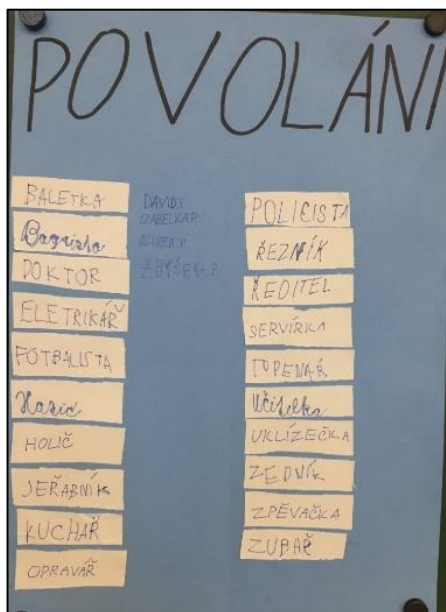 POVOLÁNÍ
BALETKA
Bagrista
DOKTOR
ELETRIKÁŘ
FOTBALISTA
Hasič
HOLIČ
JEŘABNÍK
KUCHAŘ
OPRAVÁŘ
DAVID S
IZABELKA P.
OLIVER P
ZBYŠEK P.
POLICISTA
ŘEZNÍK
ŘEDITEL
SERVÍRKA
TOPENÁŘ
Učitelka
UKLÍZEČKA
ZEDNÍK
ZPĚVAČKA
ZUBAŘ